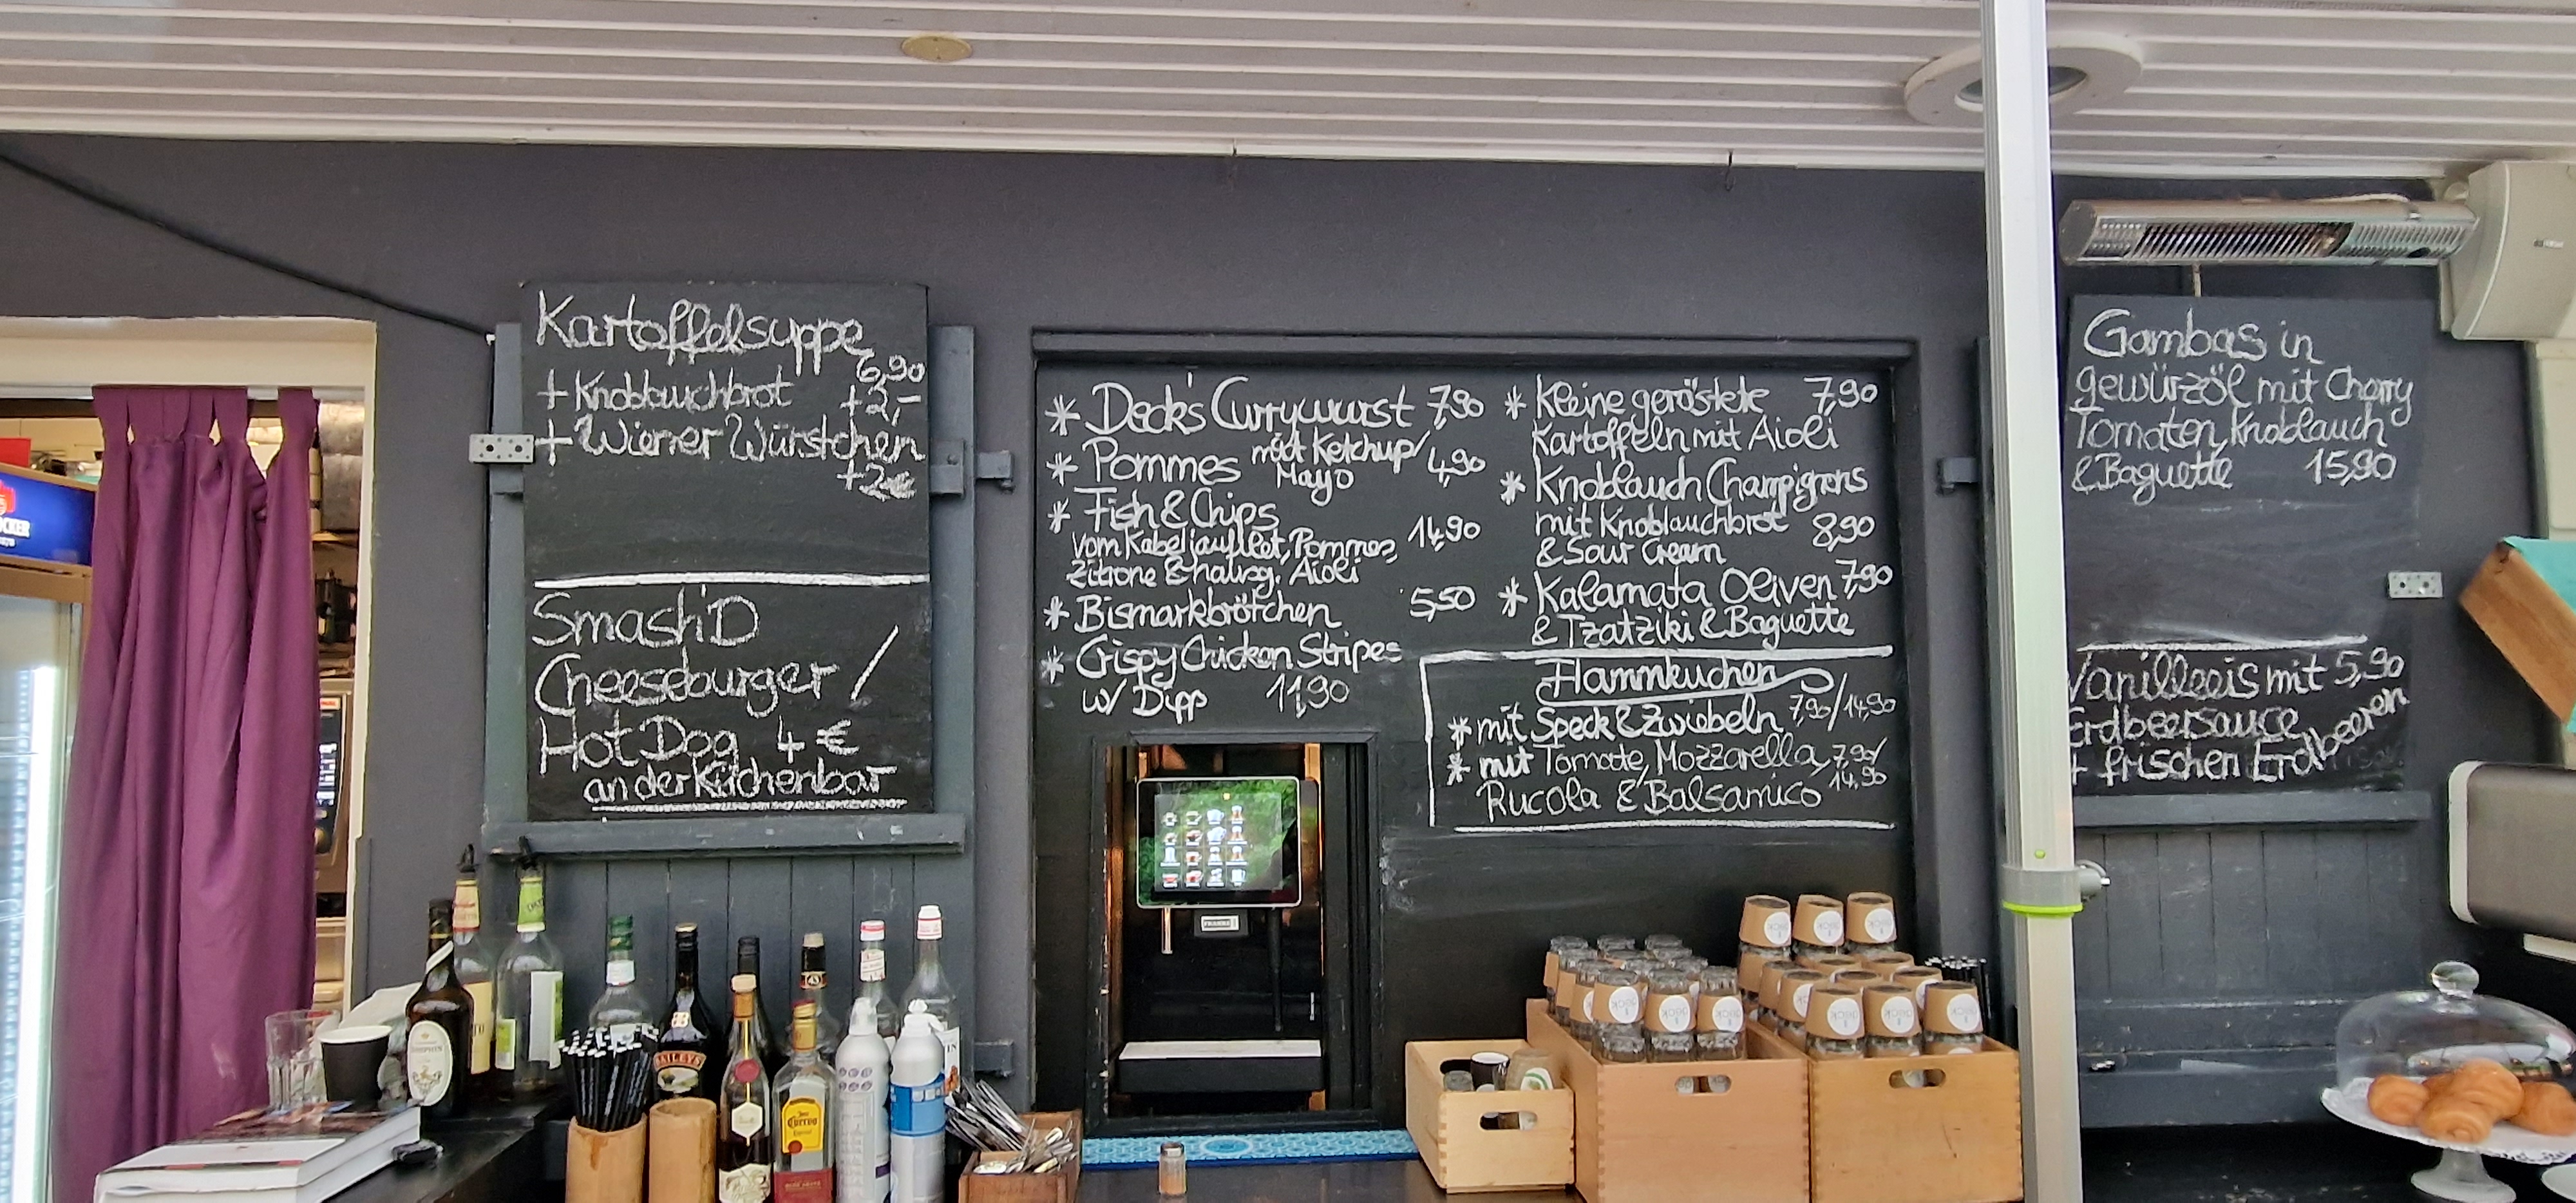 Kartoffelsuppe
6,90
+ Knoblauchbrot +2,-
+ Wiener Würstchen
+2€
Smash'D
Cheeseburger /
Hot Dog 4 €
an der Küchenbar
* Deck's Currywurst 7,90
* Pommes mit Ketchup/
Mayo 4,90
* Fish & Chips
vom Kabeljaufilet, Pommes, 14,90
Zitrone & hausg. Aioli
* Bismarkbrötchen 5,50
* Crispy Chicken Stripes
w/ Dipp 11,90
* Kleine geröstete 7,90
Kartoffeln mit Aioli
* Knoblauch Champignons
mit Knoblauchbrot 8,90
& Sour Cream
* Kalamata Oliven 7,90
& Tzatziki & Baguette
Flammkuchen
* mit Speck & Zwiebeln 7,90/14,90
* mit Tomate, Mozzarella, 7,90/
Rucola & Balsamico 14,90
Gambas in
gewürzöl mit Cherry
Tomaten, Knoblauch
& Baguette 15,90
Vanilleeis mit 5,90
Erdbeersauce
+ frischen Erdbeeren
BAILEYS
Jose
Cuervo
Especial
43
FRANKE
deck
deck
deck